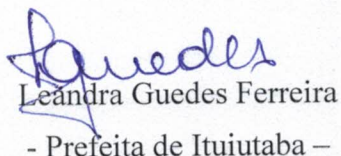 Guedes
Leandra Guedes Ferreira
- Prefeita de Ituiutaba –